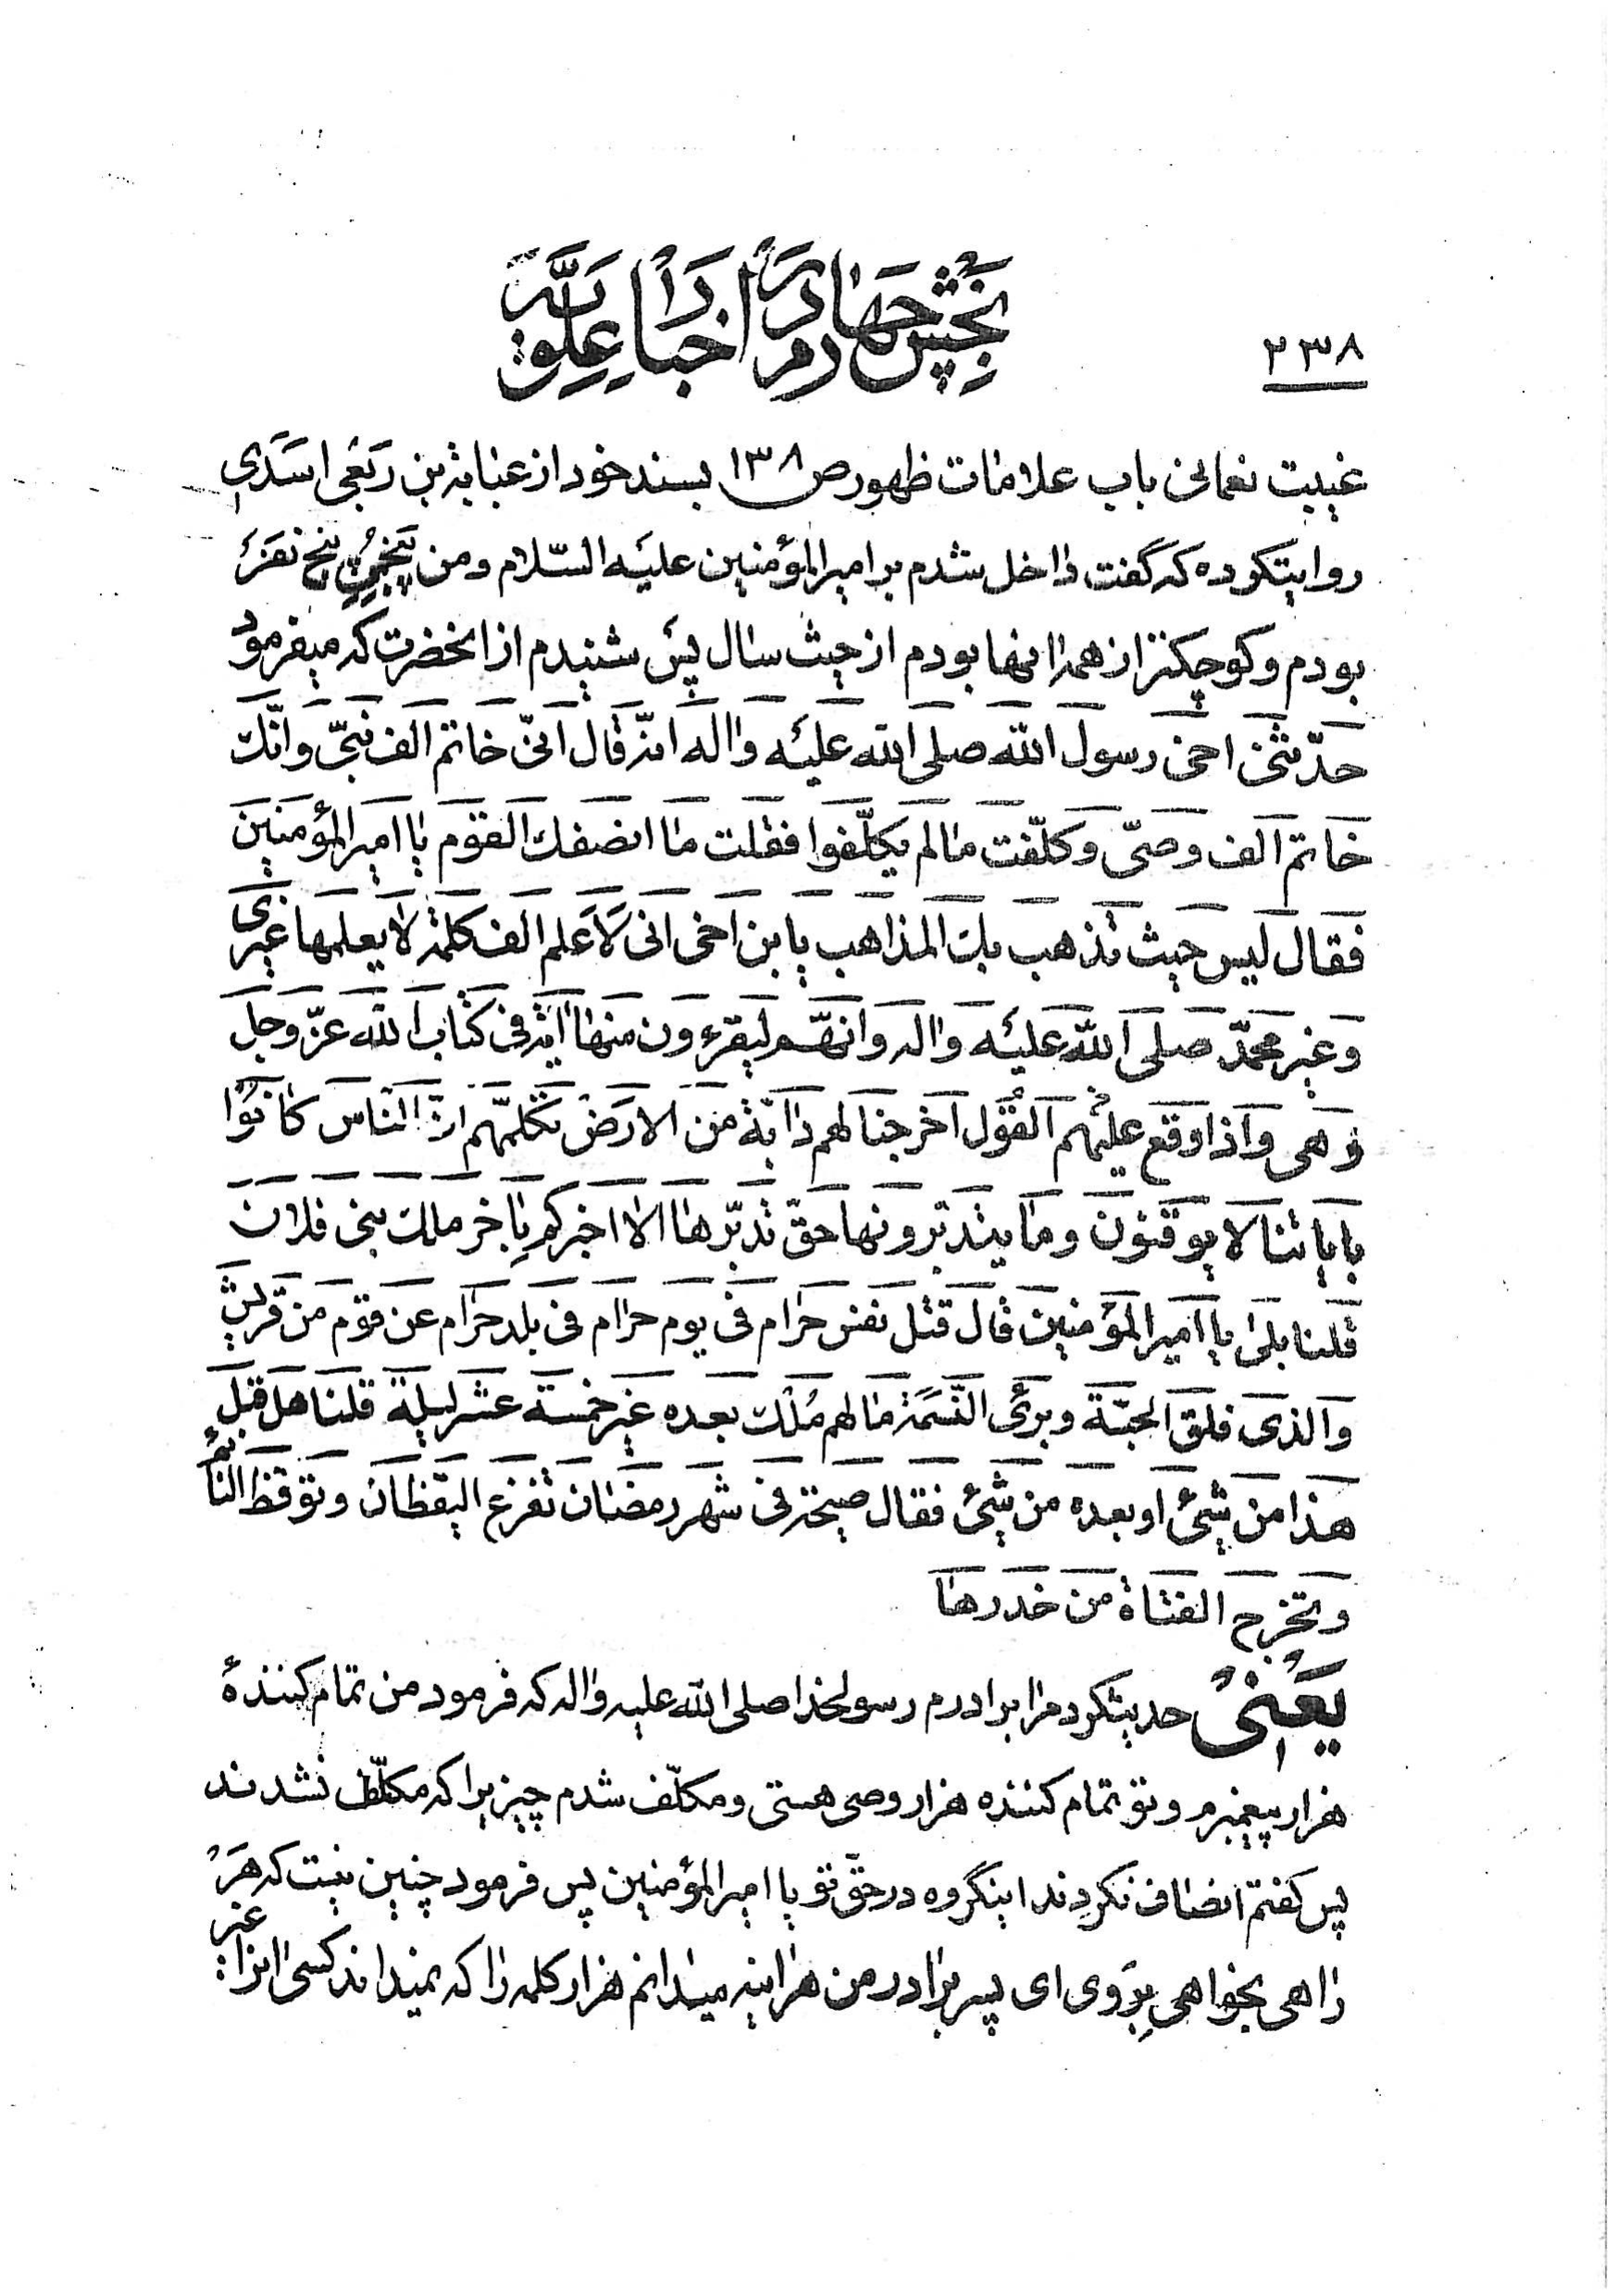 بخش چهارم در اخبار علویه
۲۳۸
غیبت نعمانی باب علامات ظهور ص ۱۳۸ بسند خود از عبایة بن ربعی اسدی
روایتکرده که گفت داخل شدم بر امیرالمؤمنین علیه السّلام و من پنجمی پنج نفر
بودم و کوچکتر از همه انها بودم از حیث سال پس شنیدم از انحضرت که میفرمود
حدّثنی اخی رسول الله صلی الله علیه واله انّه قال انّی خاتم الف نبیّ وانّک
خاتم الف وصیّ وکلّفت مالم یکلّفوا فقلت ما انصفک القوم یا امیرالمؤمنین
فقال لیس حیث تذهب بک المذاهب یابن اخی انی لَاَعلم الف کلمة لا یعلمها غیری
وغیر محمّد صلی الله علیه واله وانهّم لیقرءون منها ایة فی کتاب الله عزّ وجل
وهی واذا وقع علیهم القول اخرجنا لهم دابّة من الارض تکلّمهم انّ الناس کانوا
بایاتنا لا یوقنون وما یتدبّرونها حقّ تدبّرها الا اخبرکم باخر ملک بنی فلان
قلنا بلی یا امیرالمؤمنین قال قتل نفس حرام فی یوم حرام فی بلد حرام عن قوم من قریش
والذی فلق الحبّة وبرئ النّسَمَة مالهم مُلک بعده غیر خمسة عشر لیلة قلنا هل قبل
هذا من شیئ او بعده من شیئ فقال صیحة فی شهر رمضان تفزع الیقظان وتوقظ النائم
وتخرج الفتاة من خدرها
یعنی حدیثکرد مرا برادرم رسولخدا صلی الله علیه واله که فرمود من تمام کنندهٔ
هزار پیغمبرم و تو تمام کننده هزار وصی هستی و مکلّف شدم چیزیرا که مکلّف نشدند
پس گفتم انصاف نکردند اینگروه در حقّ تو یا امیرالمؤمنین پس فرمود چنین نیست که هر
راهی بخواهی بروی ای پسر برادر من هراینه میدانم هزار کلمه را که نمیداند کسی انرا غیر